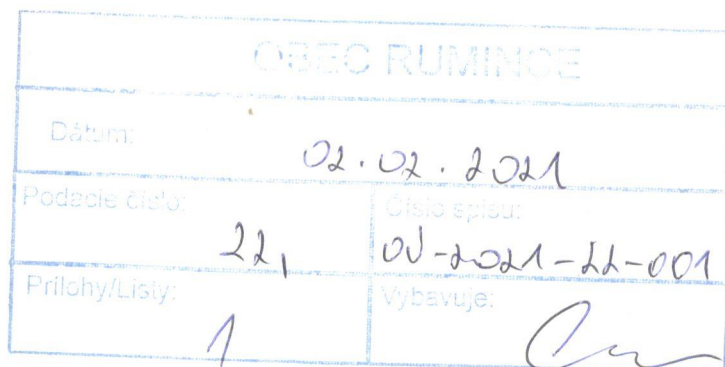 OBEC RUMINCE
Dátum:
02.02.2021
Podacie číslo:
22,
Číslo spisu:
OÚ-2021-22-001
Prílohy/Listy:
1
Vybavuje: